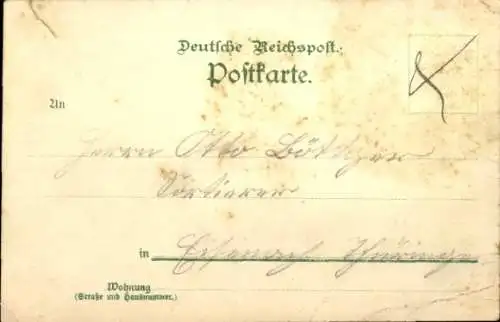 Deutsche Reichspost.
Postkarte.
An
Herrn Otto Böttcher
in Eisenach Thüringen
Wohnung
(Straße und Hausnummer.)